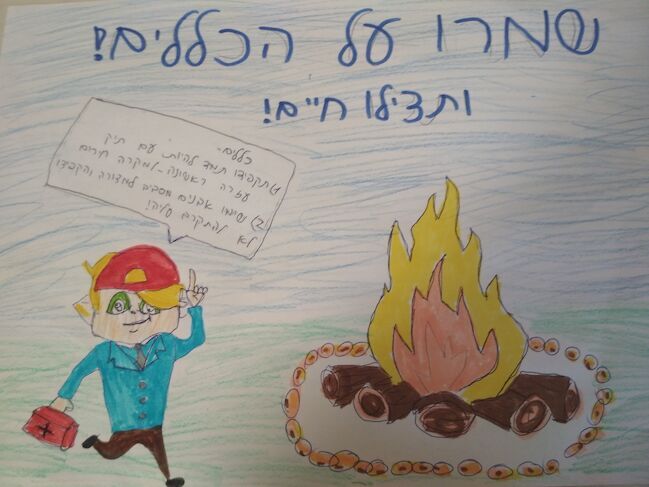 שמרו על הכללים!
ותצילו חיים!
כללים-
1) תקפידו תמד להיות עם תיק
עזרה ראשונה-למקרה חירום
2) שימו אבנים מסביב למדורה והקפידו
לא להתקרב עליה!